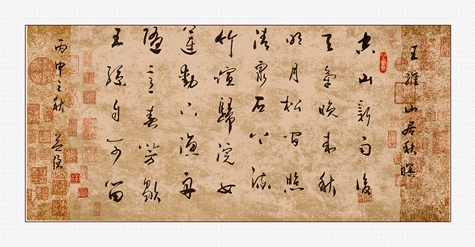 王維山居秋暝
空山新雨後
天氣晚來秋
明月松間照
清泉石上流
竹喧歸浣女
蓮動下漁舟
隨意春芳歇
王孫自可留
丙申之秋